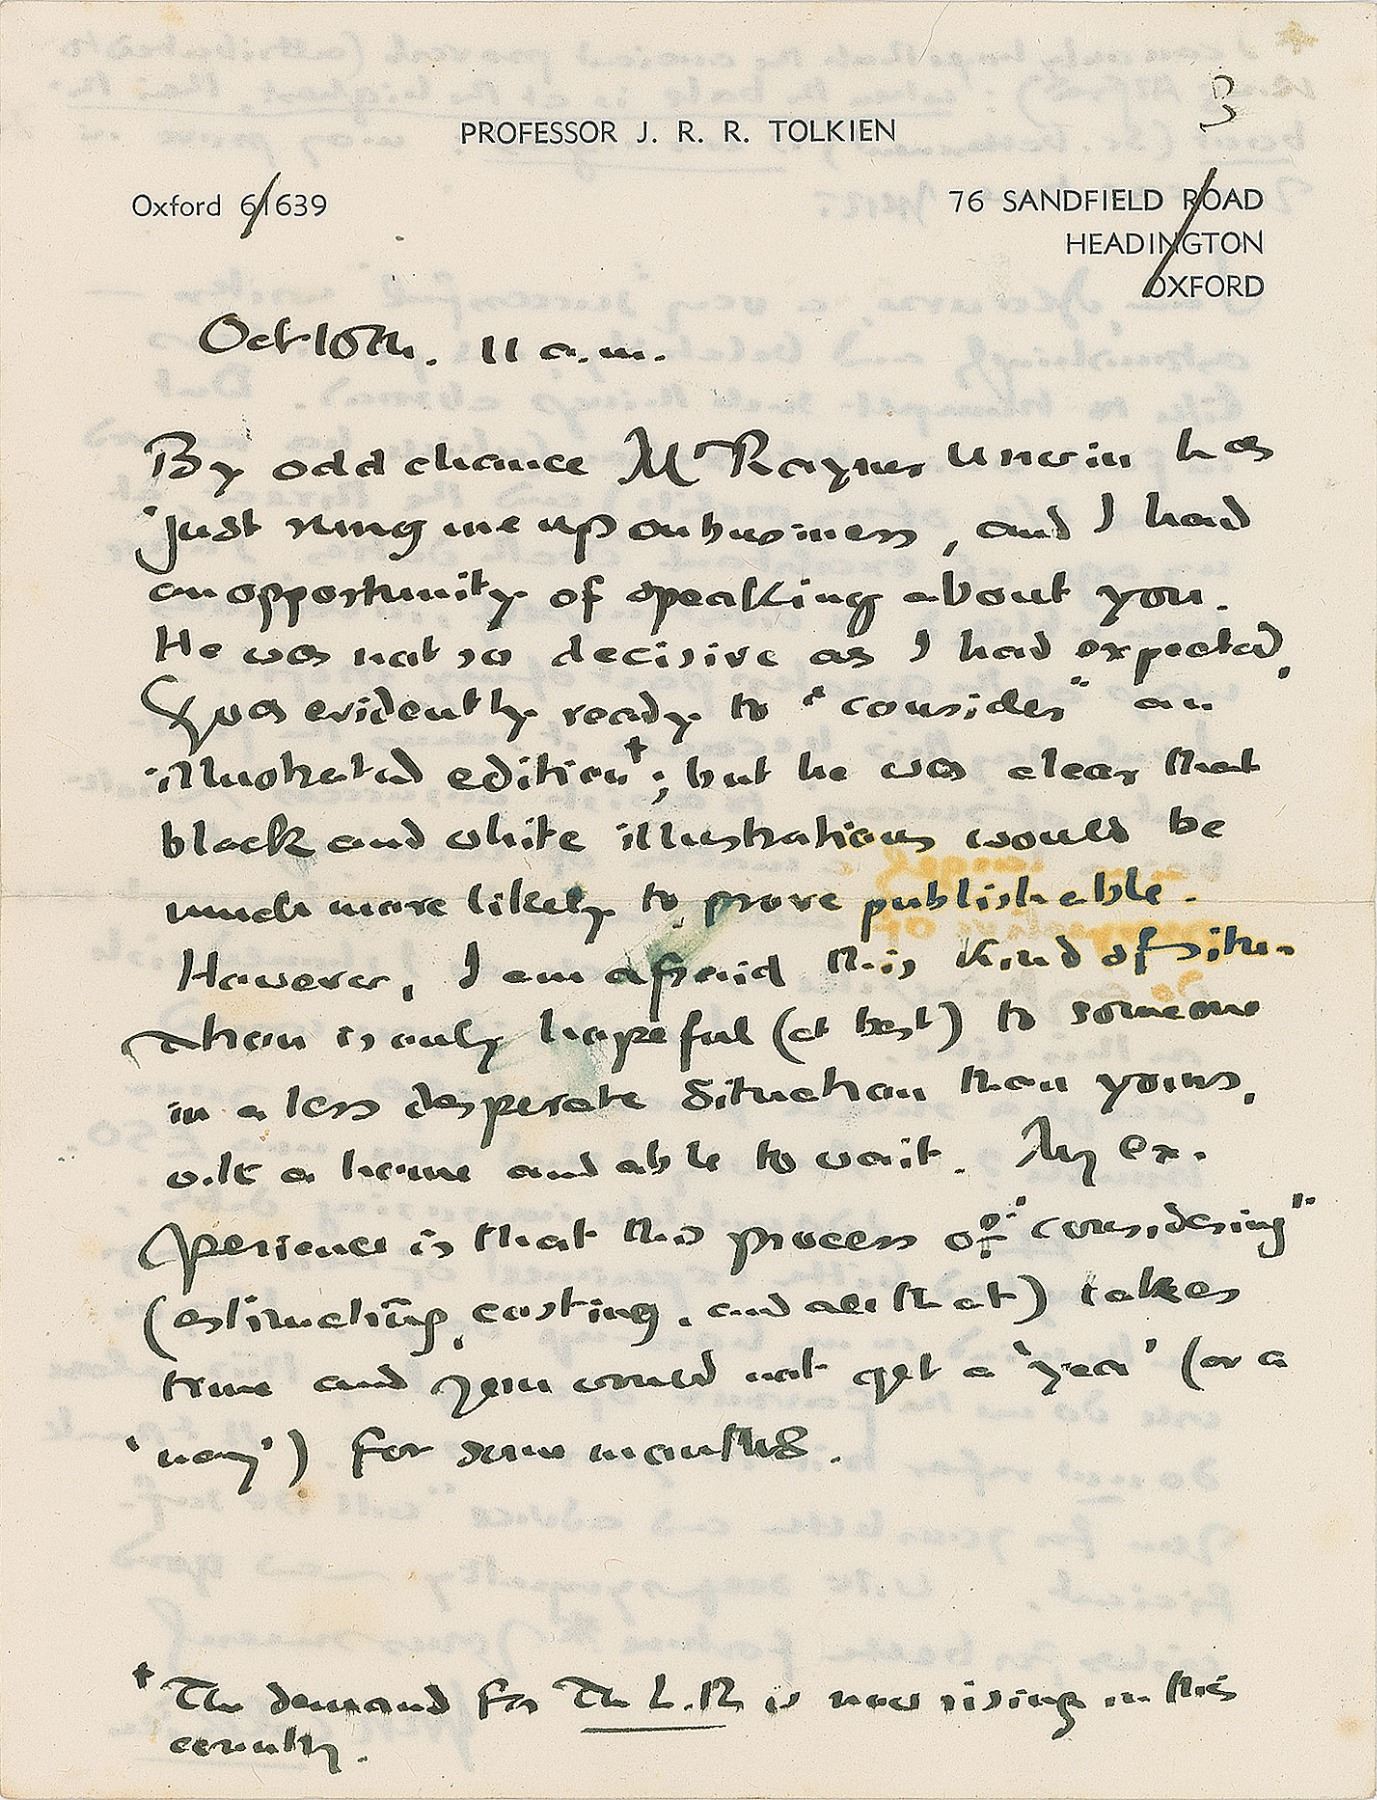 3
PROFESSOR J. R. R. TOLKIEN
Oxford 61639
76 SANDFIELD ROAD
HEADINGTON
OXFORD
Oct 10th. 11 a.m.
By odd chance Mr Rayner Unwin has
just rung me up on business, and I had
an opportunity of speaking about you.
He was not so decisive as I had expected,
& was evidently ready to "consider" an
illustrated edition†; but he was clear that
black and white illustrations would be
much more likely to prove publishable.
However, I am afraid this kind of situ-
ation is only hopeful (at best) to someone
in a less desperate situation than yours,
with a home and able to wait. My ex-
perience is that this process of "considering"
(estimating, costing, and all that) takes
time and you would not get a 'yea' (or a
'nay') for some months.
† The demand for The L.R. is now rising in this
country.